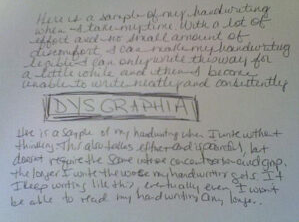 Here is a sample of my handwriting
when I take my time. With a lot of
effort and no small amount of
discomfort, I can make my handwriting
legible. I can only write this way for
a little while and then I become
unable to write neatly and consistently
DYSGRAPHIA
Here is a sample of my handwriting when I write without
thinking. This also takes effort and is painful, but
doesn't require the same intense concentration and grip.
The longer I write the worse my handwriting gets. If
I keep writing like this, eventually even I won't
be able to read my handwriting any longer.